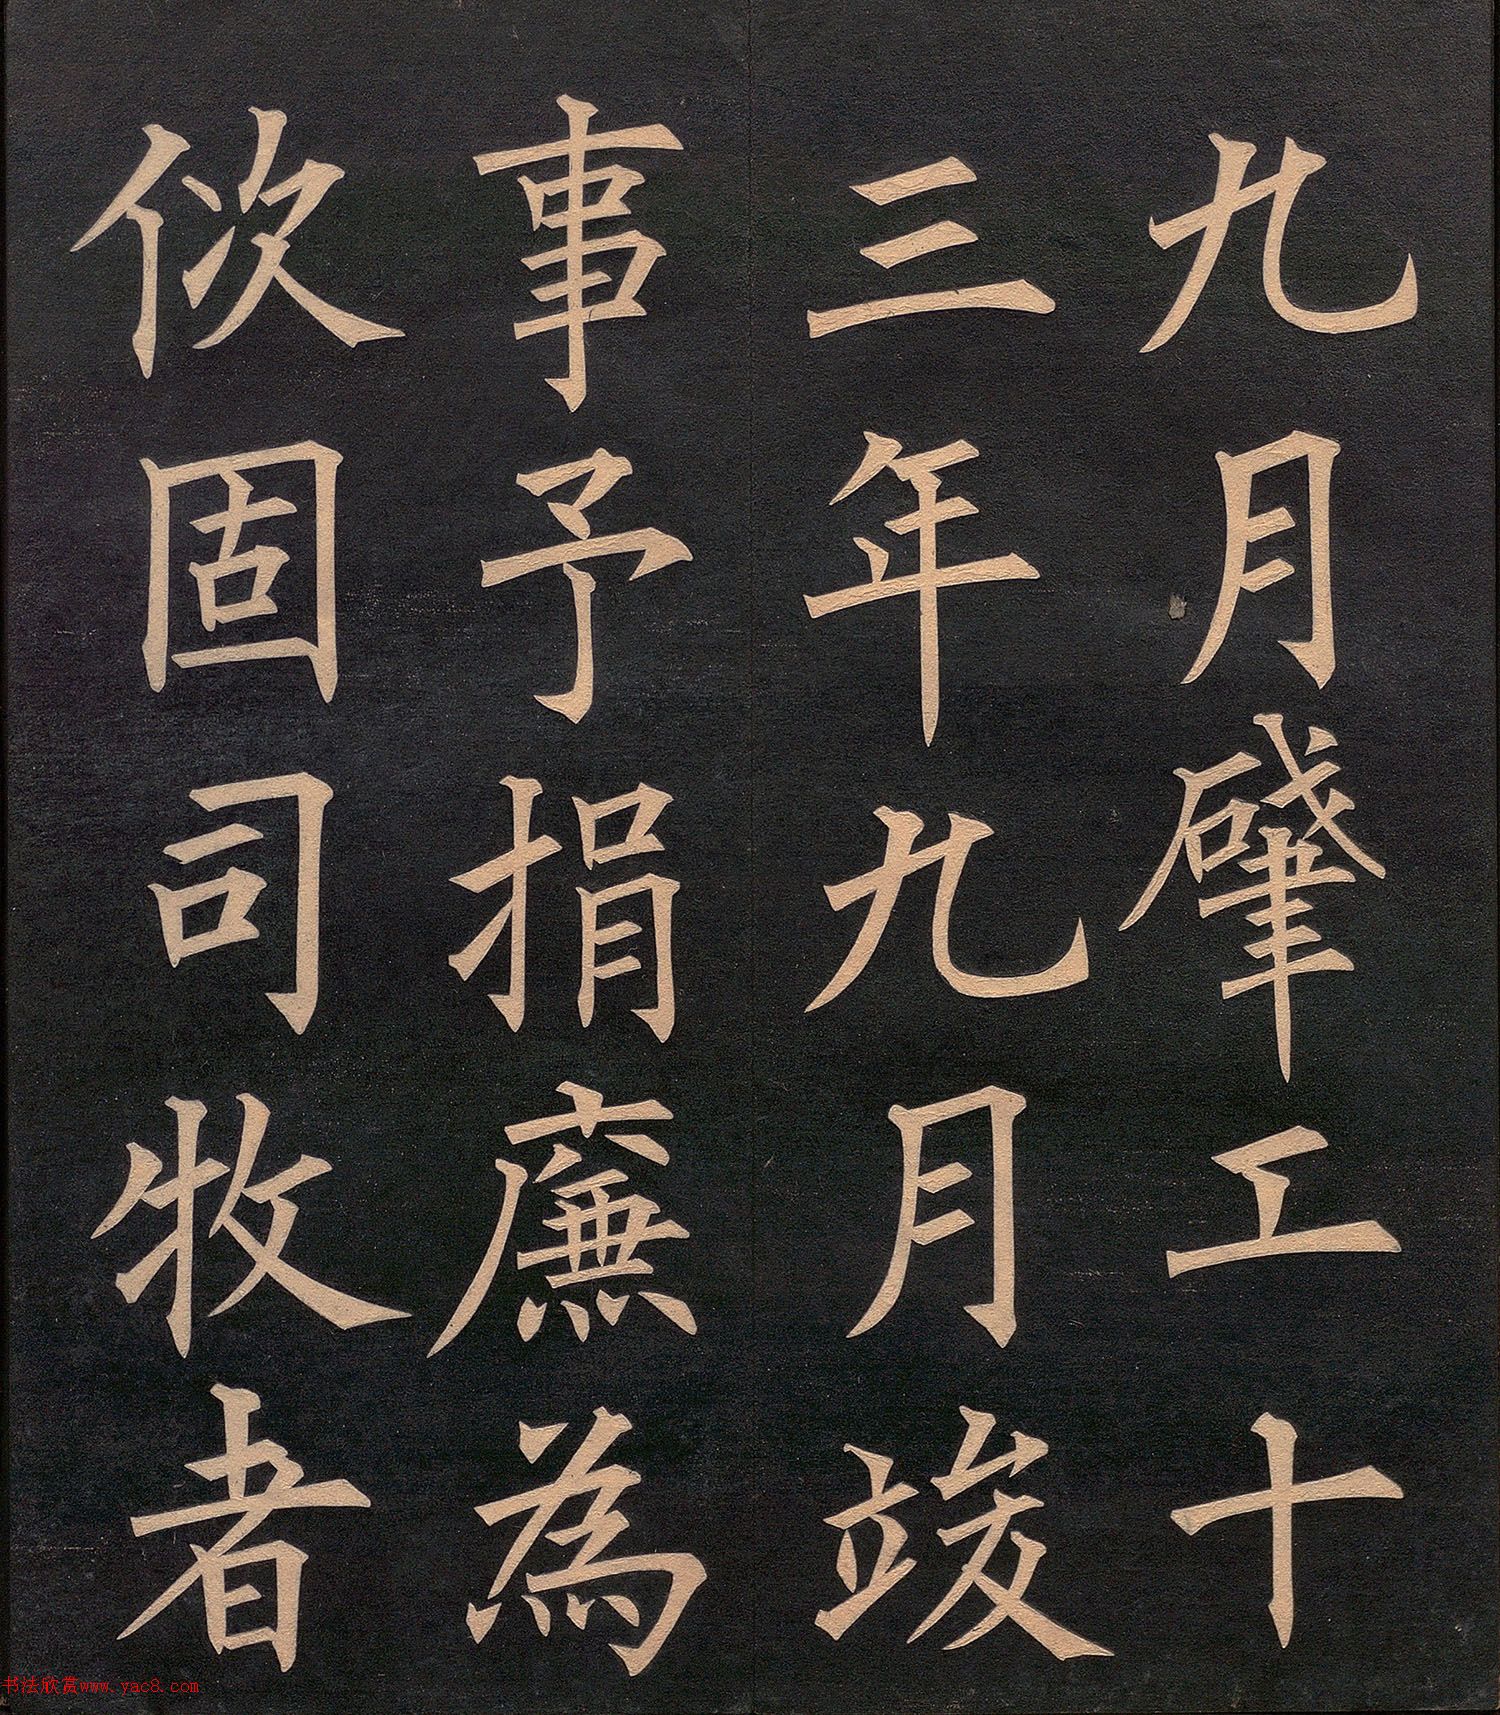 九月肇工十
三年九月竣
事予捐廉為
佽固司牧者
书法欣赏www.yac8.com